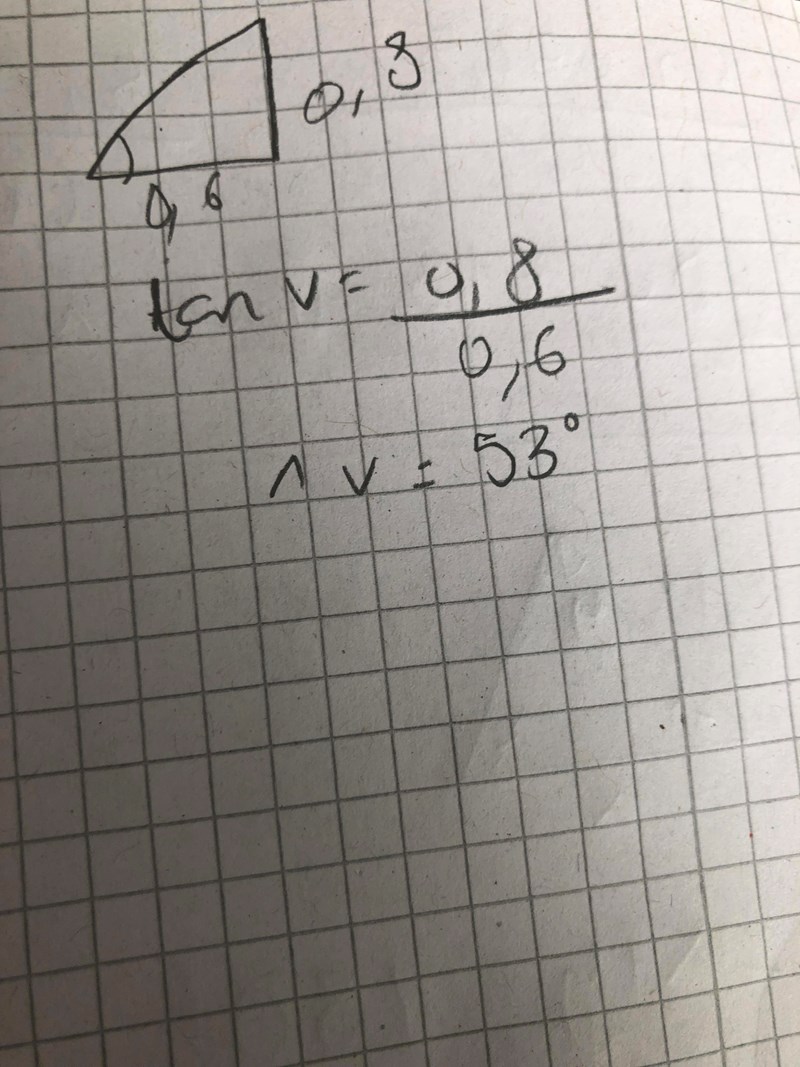 0,8
0,6
tan v = 0,8
0,6
^ v = 53°